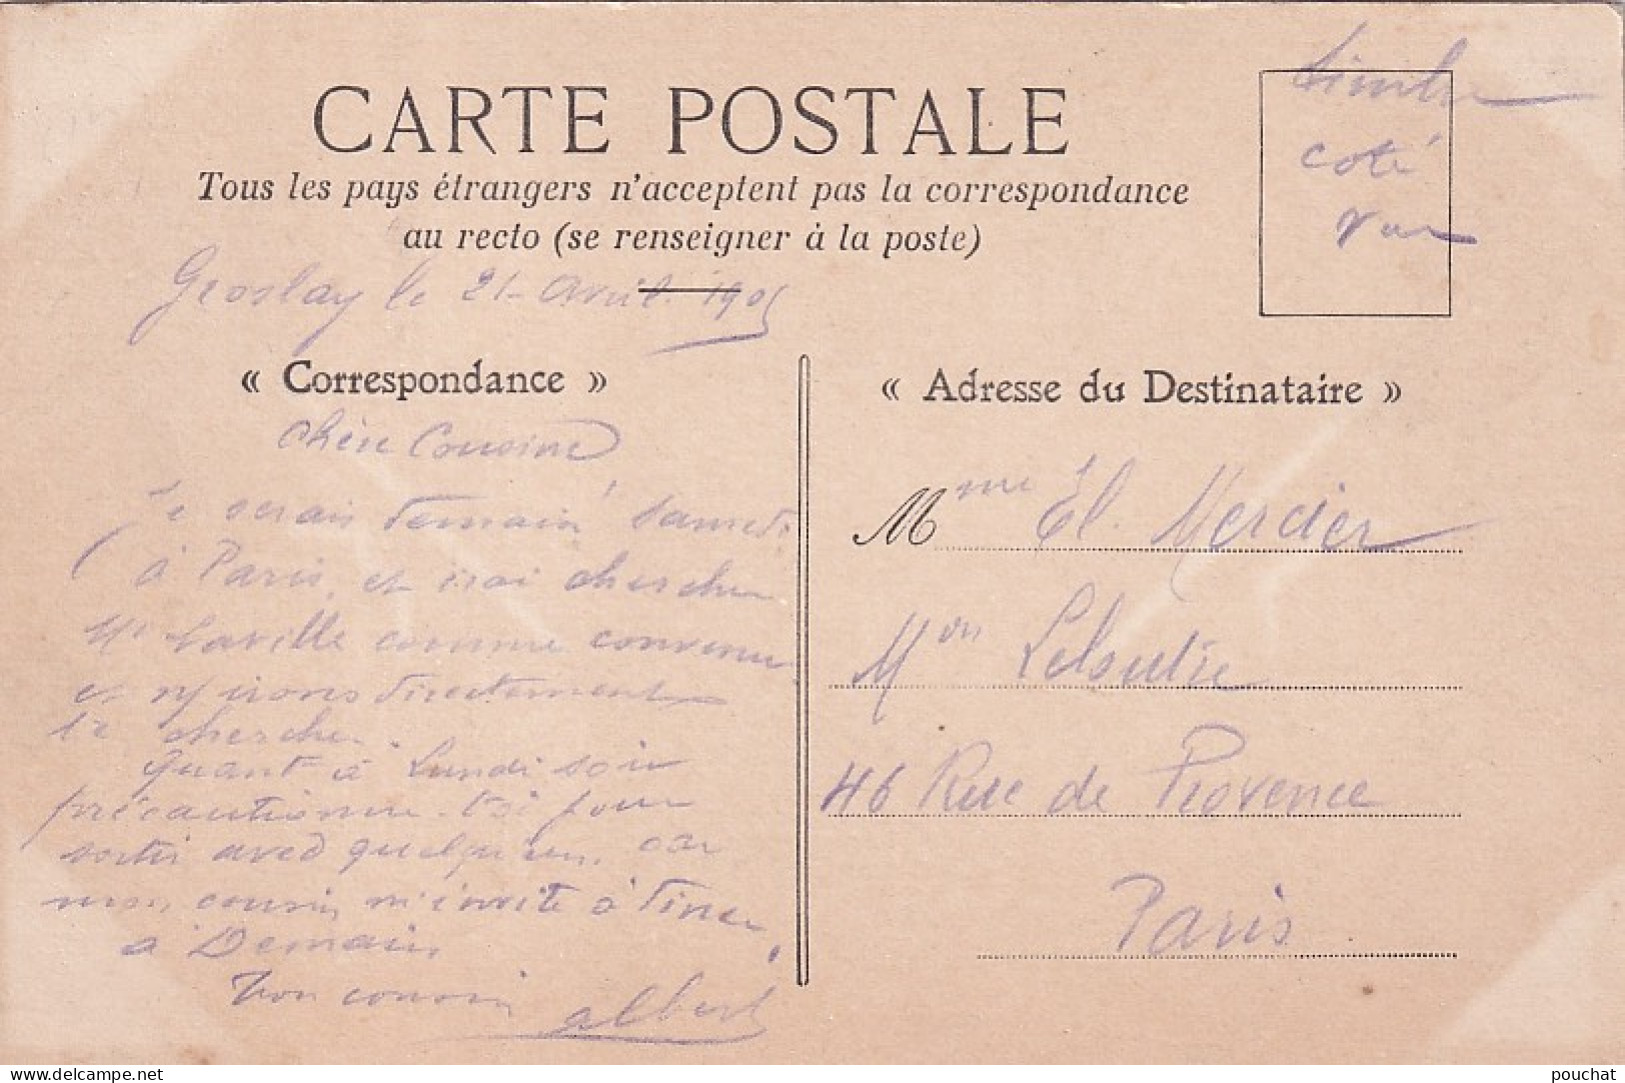 timbre
coté
vue
CARTE POSTALE
Tous les pays étrangers n'acceptent pas la correspondance
au recto (se renseigner à la poste)
Groslay le 21 Avril 1905
« Correspondance »
Chère Cousine
Je serais demain samedi
à Paris, et irai chercher
Mr Laville comme convenu
et n/ irons directement
te chercher.
Quant à Lundi soir
précautionne toi pour
sortir avec quelqu'un, car
mon cousin m'invite à diner,
a Demain,
Ton cousin
Albert
« Adresse du Destinataire »
Mme El. Mercier
Mon
46 Rue de Provence
Paris
www.delcampe.net
pouchat